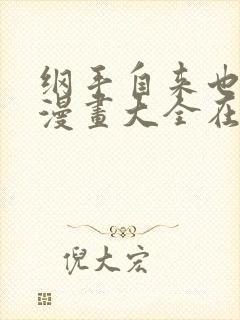 纲手自来也
漫畫大全在
倪大宏